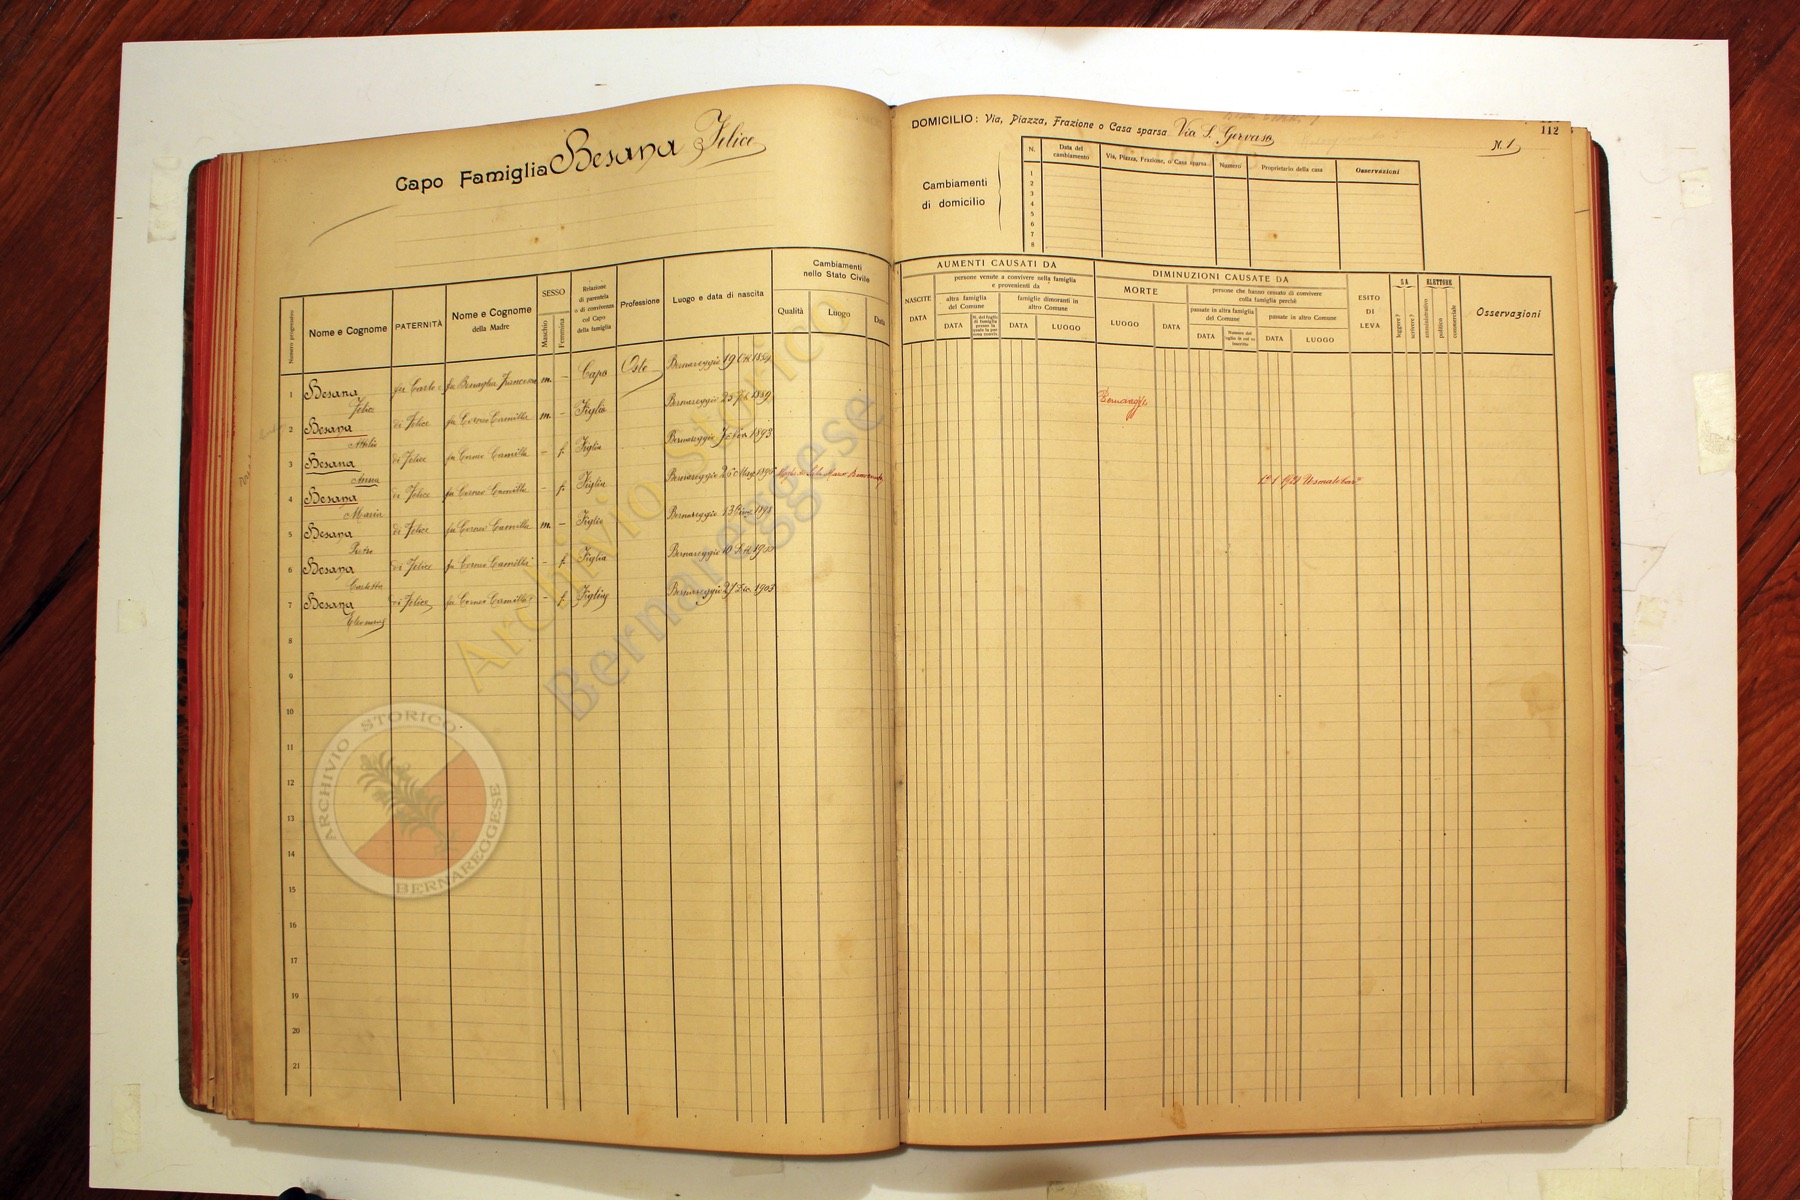 Capo Famiglia Besana Felice
DOMICILIO: Via, Piazza, Frazione o Casa sparsa Via S. Gervaso
112
N. 1
Cambiamenti
di domicilio
N. Data del cambiamento Via, Piazza, Frazione, o Casa sparsa Numero Proprietario della casa Osservazioni
1
2
3
4
5
6
7
8
Numero progressivo
Nome e Cognome
PATERNITÀ
Nome e Cognome
della Madre
SESSO
Maschio
Femmina
Relazione
di parentela
o di convivenza
col Capo
della famiglia
Professione
Luogo e data di nascita
Cambiamenti
nello Stato Civile
Qualità Luogo Data
AUMENTI CAUSATI DA
NASCITE
DATA
persone venute a convivere nella famiglia
e provenienti da
altra famiglia
del Comune
DATA
famiglie dimoranti in
altro Comune
DATA LUOGO
DIMINUZIONI CAUSATE DA
MORTE
LUOGO DATA
persone che hanno cessato di convivere
colla famiglia perchè
passate in altra famiglia
del Comune
DATA
passate in altro Comune
DATA LUOGO
ESITO
DI
LEVA
SA
leggere?
scrivere?
ELETTORE
amministrativo
politico
commerciale
Osservazioni
1 Besana Felice fu Carlo fu Benaglia Francesca m. – Capo Oste Bernareggio 19
2 Besana Attilio di Felice fu Corneo Camilla m. – Figlio Bernareggio 25 Feb 1889 Bernareggio
3 Besana Anna di Felice fu Corneo Camilla – f. Figlia Bernareggio 1893
4 Besana Maria di Felice fu Corneo Camilla – f. Figlia Bernareggio 26 1921
5 Besana Pietro di Felice fu Corneo Camilla m. – Figlio Bernareggio 13
6 Besana Carlotta di Felice fu Corneo Camilla – f. Figlia Bernareggio 10
7 Besana Eleonora di Felice fu Corneo Camilla – f. Figlia Bernareggio 27 Dic. 1903
8
9
10
11
12
13
14
15
16
17
18
19
20
21
Archivio storico
Bernareggese
ARCHIVIO STORICO
BERNAREGGESE